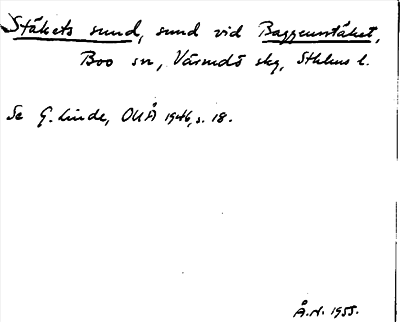 Stäkets sund, sund vid Baggensstäket,
Boo sn, Värmdö skg, Sthlms l.
Se G. Linde, OUÅ 1946, s. 18.
Å.N. 1955.